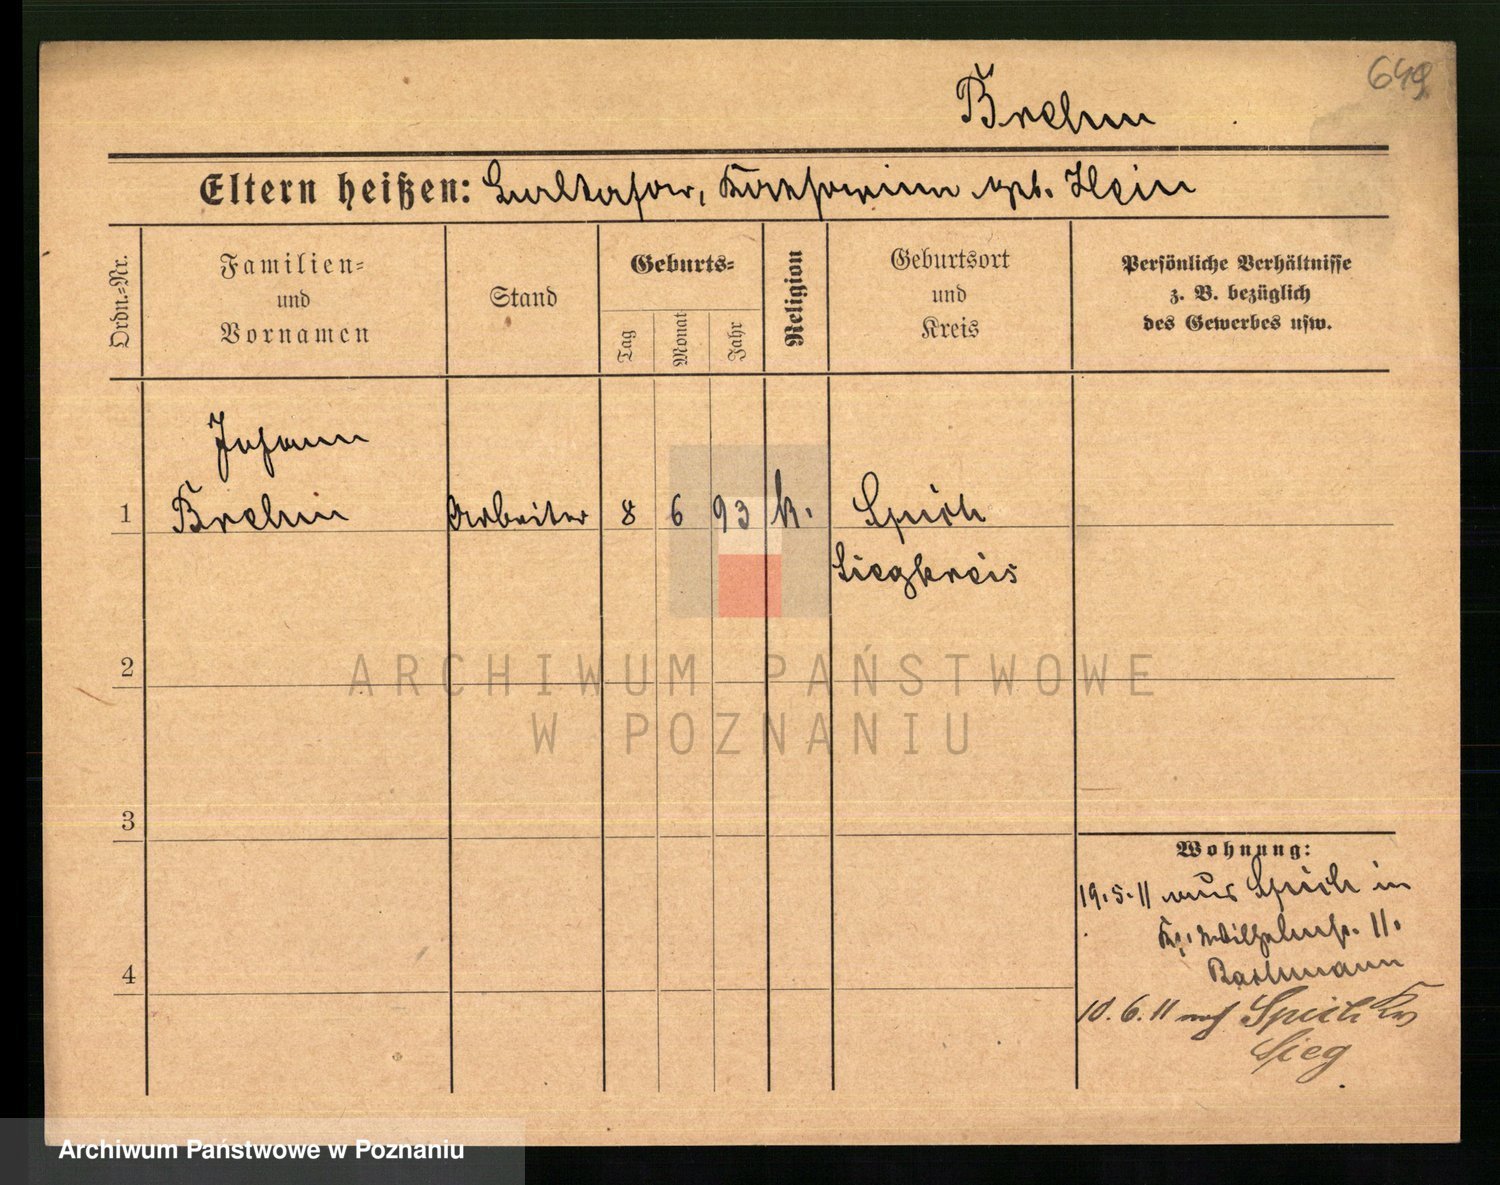 649
Brehm
Eltern heißen: Balthasar, Katharina geb. Klein
Ordn.-Nr.
Familien-
und
Vornamen
Stand
Geburts-
Tag
Monat
Jahr
Religion
Geburtsort
und
Kreis
Persönliche Verhältnisse
z. B. bezüglich
des Gewerbes usw.
Johann
1 Brehm Arbeiter 8 6 93 k. Spich
Siegkreis
2
ARCHIWUM PAŃSTWOWE
W POZNANIU
3
Wohnung:
19.5.11 aus Spich in
Wilhelmstr. 11.
Bachmann
4
10.6.11 nach Spich Krs
Sieg
Archiwum Państwowe w Poznaniu